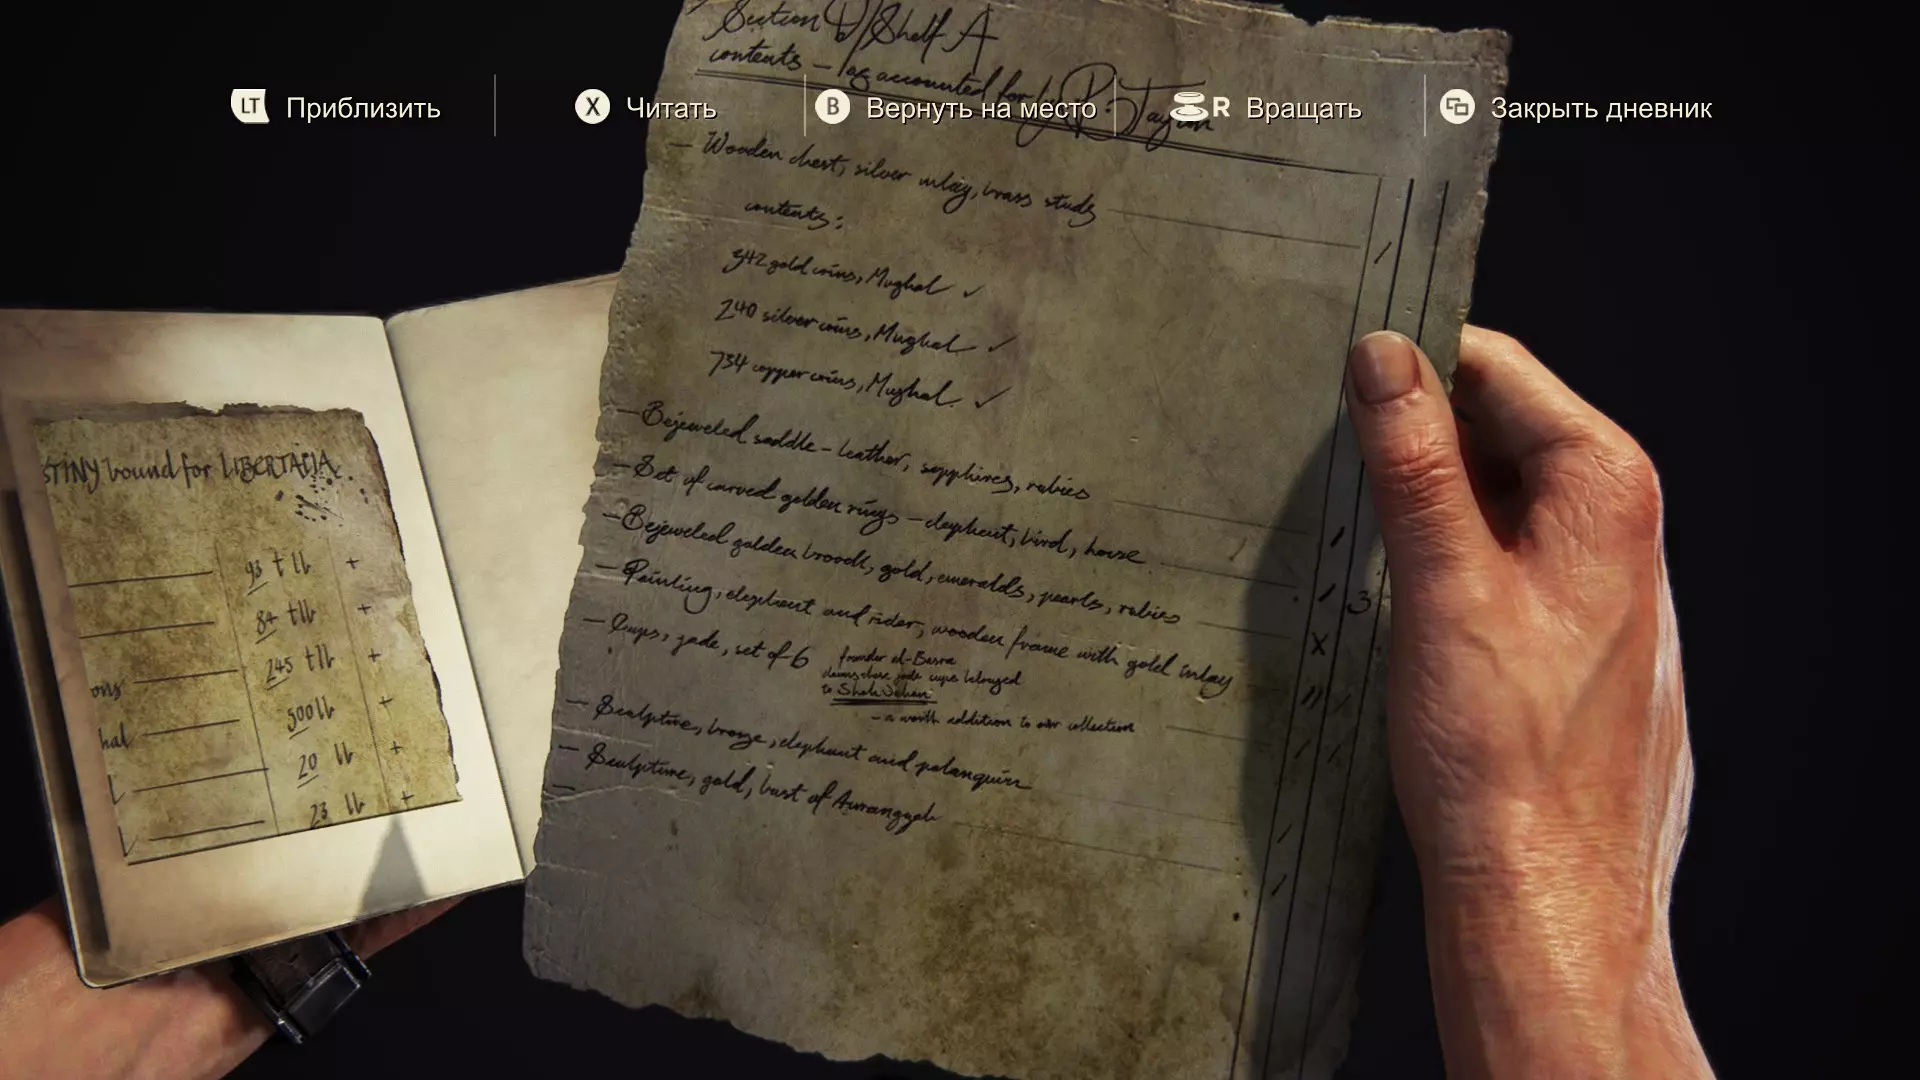 LT Приблизить
X Читать
B Вернуть на место
R Вращать
Закрыть дневник
Section D/Shelf A
contents – as accounted for by R. Taylor
– Wooden chest, silver inlay, brass studs
contents:
342 gold coins, Mughal ✓
240 silver coins, Mughal ✓
734 copper coins, Mughal ✓
– Bejeweled saddle – leather, sapphires, rubies
– Set of carved golden rings – elephant, bird, horse
– Bejeweled golden brooch, gold, emeralds, pearls, rubies
– Painting, elephant and rider, wooden frame with gold inlay
– Cups, jade, set of 6
founder el-Basra
claims these jade cups belonged
to Shah Jehan
– a worth addition to our collection
– Sculpture, bronze, elephant and palanquin
– Sculpture, gold, bust of Aurangzeb
3
X
STINY bound for LIBERTALIA
93 t lb +
84 t lb +
245 t lb +
ons
500 lb +
hal
20 lb +
23 lb +